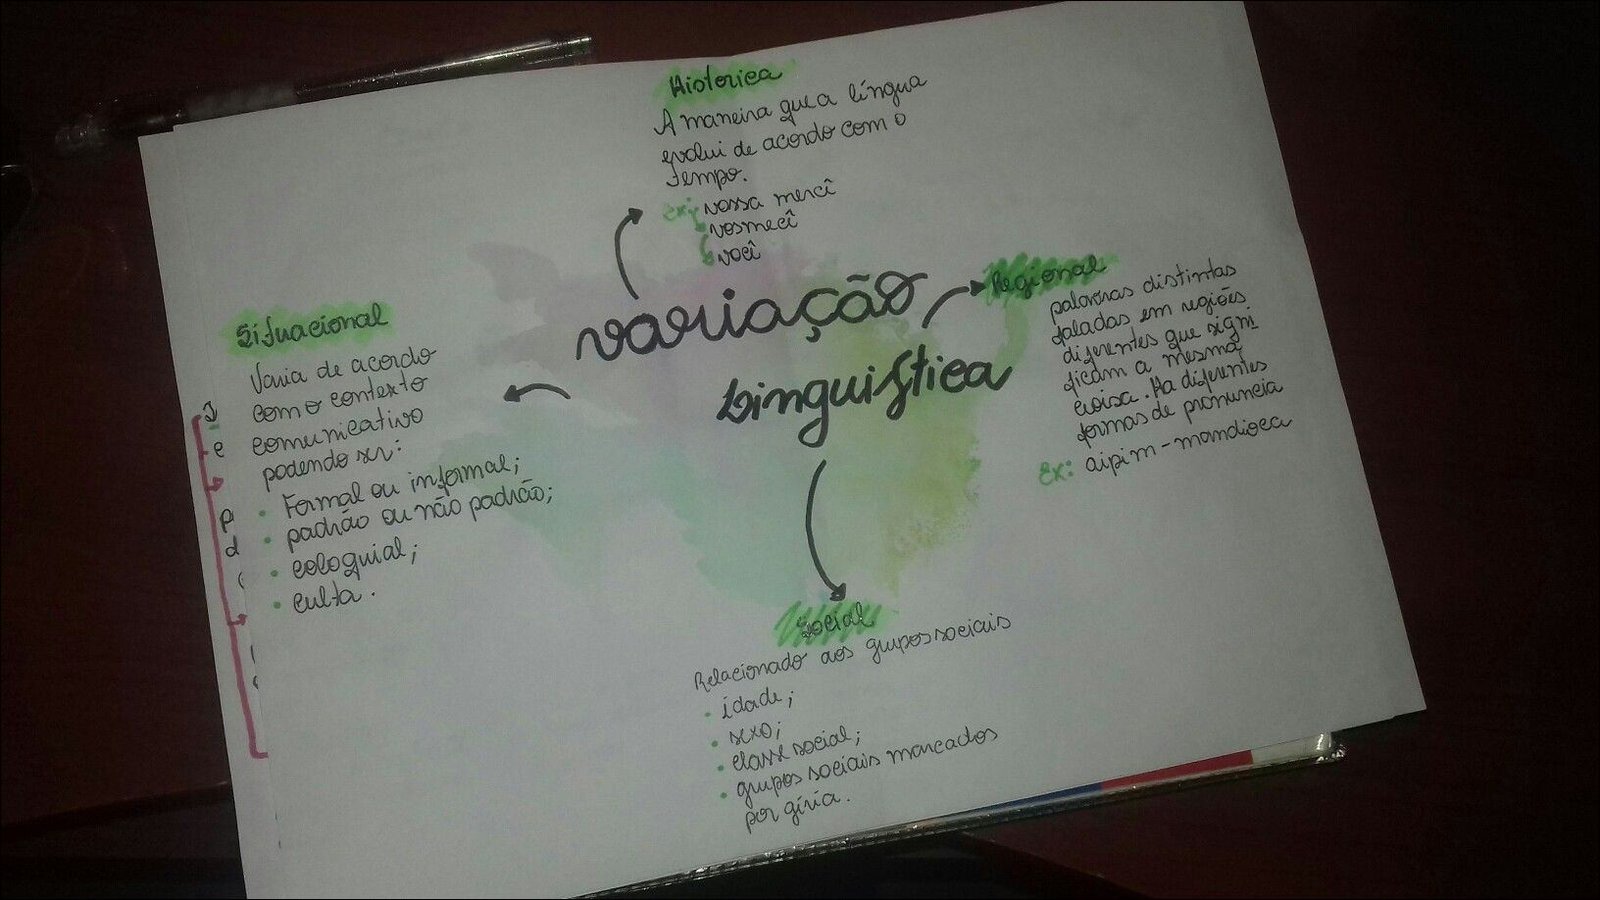 Historica
A maneira que a língua
evolui de acordo com o
tempo.
ex: vossa mercê
vosmecê
você
variação
Linguística
Regional
palavras distintas
faladas em regiões
diferentes que signi
ficam a mesma
coisa. Ha diferentes
formas de pronuncia
Ex: aipim - mandioca
Situacional
Varia de acordo
com o contexto
comunicativo
podendo ser:
• Formal ou informal;
• padrão ou não padrão;
• coloquial;
• culta.
Social
Relacionado aos grupos sociais
• idade;
• sexo;
• classe social;
• grupos sociais marcados
por gíria.